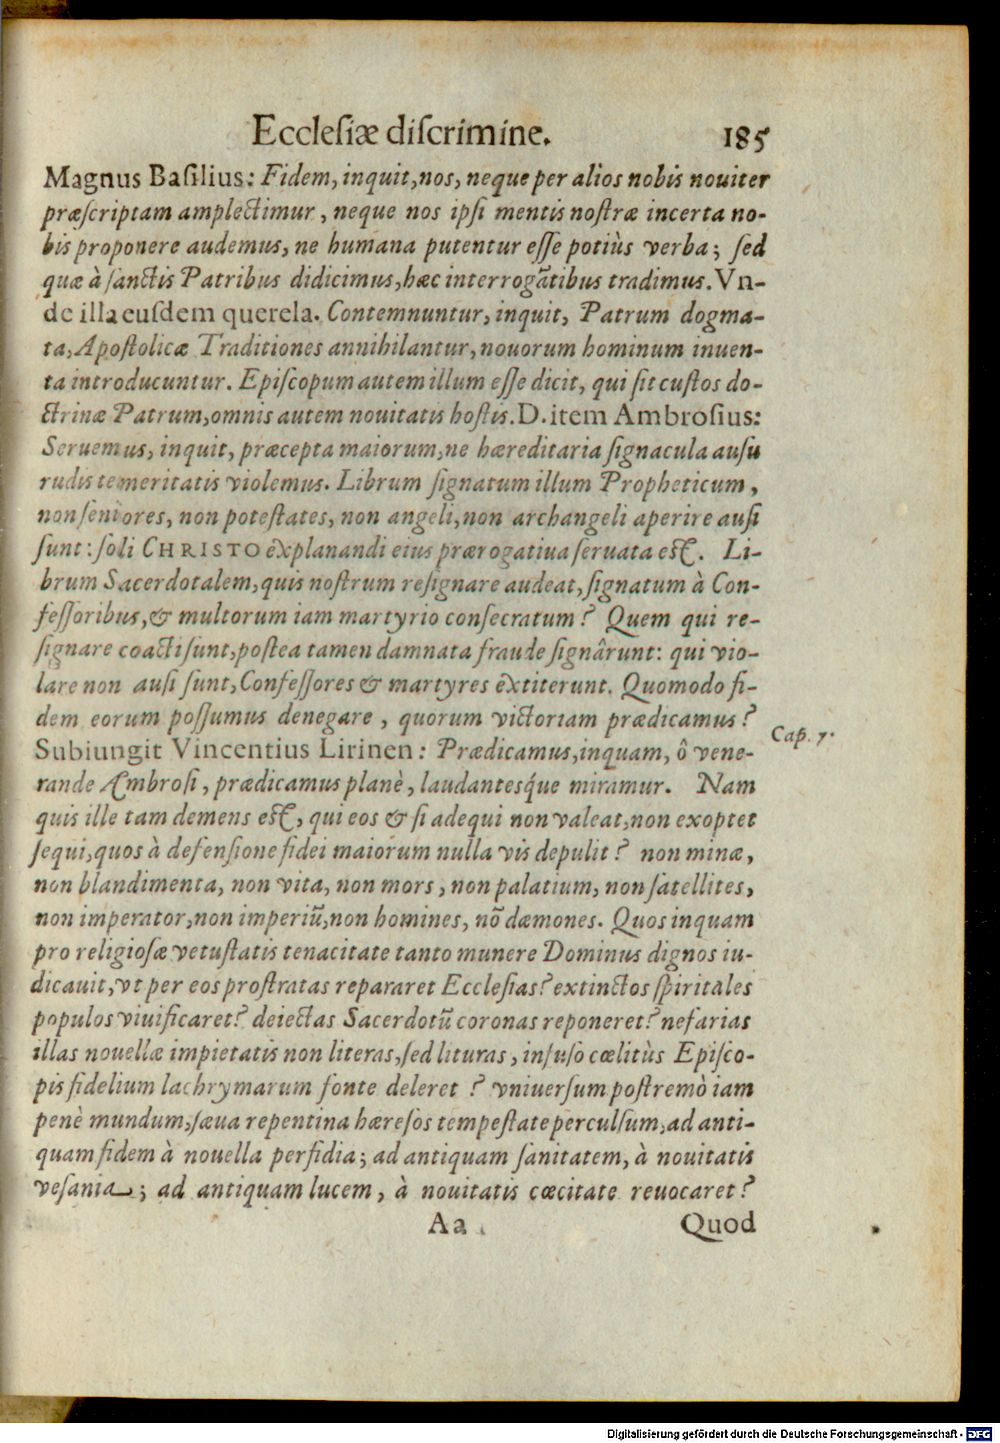 Ecclesiæ discrimine. 185
Magnus Basilius: Fidem, inquit, nos, neque per alios nobis nouiter
præscriptam amplectimur, neque nos ipsi mentis nostræ incerta no-
bis proponere audemus, ne humana putentur esse potiùs verba; sed
quæ à sanctis Patribus didicimus, hæc interrogãtibus tradimus. Vn-
de illa eusdem querela. Contemnuntur, inquit, Patrum dogma-
ta, Apostolicæ Traditiones annihilantur, nouorum hominum inuen-
ta introducuntur. Episcopum autem illum esse dicit, qui sit custos do-
ctrinæ Patrum, omnis autem nouitatis hostis. D. item Ambrosius:
Seruemus, inquit, præcepta maiorum, ne hæreditaria signacula ausu
rudis temeritatis violemus. Librum signatum illum Propheticum,
non seniores, non potestates, non angeli, non archangeli aperire ausi
sunt: soli CHRISTO explanandi eius prærogatiua seruata est. Li-
brum Sacerdotalem, quis nostrum resignare audeat, signatum à Con-
fessoribus, & multorum iam martyrio consecratum? Quem qui re-
signare coacti sunt, postea tamen damnata fraude signârunt: qui vio-
lare non ausi sunt, Confessores & martyres extiterunt. Quomodo fi-
dem eorum possumus denegare, quorum victoriam prædicamus?
Subiungit Vincentius Lirinen: Prædicamus, inquam, ô vene-
Cap. 7.
rande Ambrosi, prædicamus planè, laudantesq́ue miramur. Nam
quis ille tam demens est, qui eos & si adequi non valeat, non exoptet
sequi, quos à defensione fidei maiorum nulla vis depulit? non minæ,
non blandimenta, non vita, non mors, non palatium, non satellites,
non imperator, non imperiũ, non homines, nõ dæmones. Quos inquam
pro religiosæ vetustatis tenacitate tanto munere Dominus dignos iu-
dicauit, vt per eos prostratas repararet Ecclesias? extinctos spiritales
populos viuificaret? deiectas Sacerdotũ coronas reponeret? nefarias
illas nouellæ impietatis non literas, sed lituras, infuso cœlitùs Episco-
pis fidelium lachrymarum fonte deleret? vniuersum postremò iam
penè mundum, sæua repentina hæresos tempestate perculsum, ad anti-
quam fidem à nouella perfidia; ad antiquam sanitatem, à nouitatis
vesania; ad antiquam lucem, à nouitatis cœcitate reuocaret?
Aa Quod
Digitalisierung gefördert durch die Deutsche Forschungsgemeinschaft - DFG